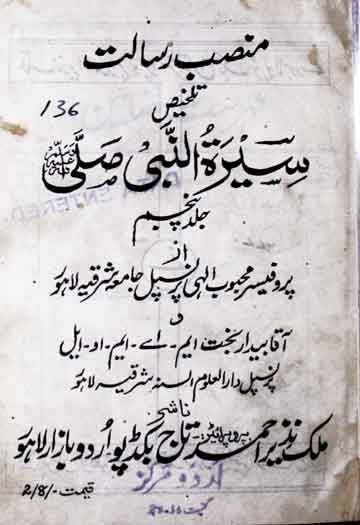 منصب رسالت
تلخیص
136
سیرۃ النبی صلی ﷺ
جلد پنجم
از
پروفیسر محبوب الٰہی پرنسپل جامعہ شرقیہ لاہور
و
آقا بیدار بخت ایم-اے-ایم-او-ایل
پرنسپل دارالعلوم السنہ شرقیہ لاہور
ناشر
ملک نذیر احمد پروپرائٹر- تاج بکڈپو اردو بازار لاہور
اردو مرکز
قیمت -/2/8